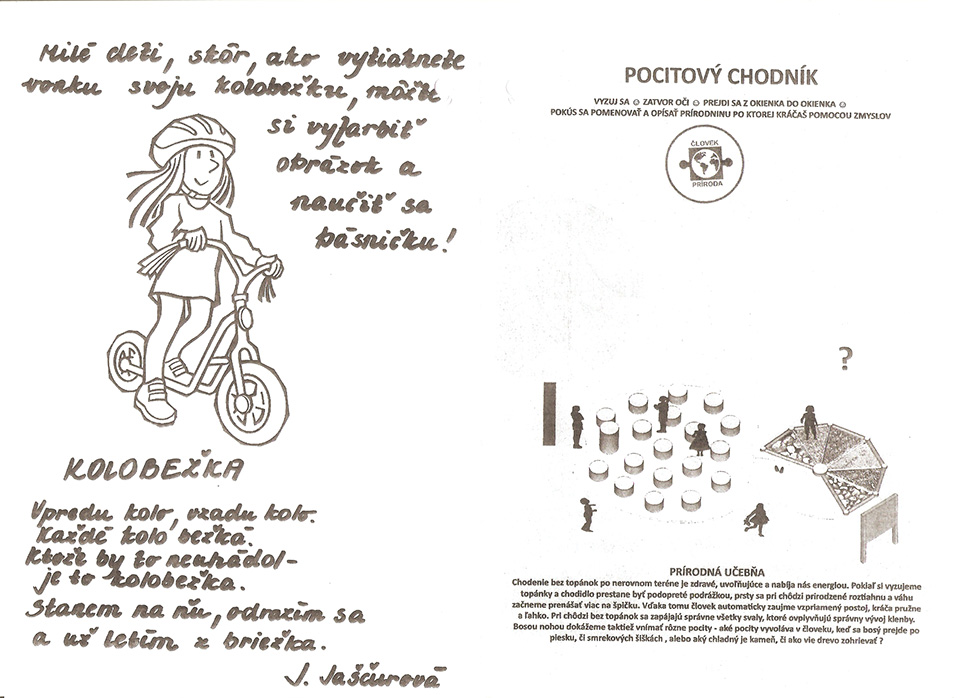 Milé deti, skôr, ako vytiahnete
vonku svoju kolobežku, môžte
si vyfarbiť
obrázok a
naučiť sa
básničku!
KOLOBEŽKA
Vpredu kolo, vzadu kolo.
Každé kolo bežká.
Ktože by to neuhádol-
je to kolobežka.
Stanem na ňu, odrazím sa
a už letím z briežka.
J. Jaščurová
POCITOVÝ CHODNÍK
VYZUJ SA ☺ ZATVOR OČI ☺ PREJDI SA Z OKIENKA DO OKIENKA ☺
POKÚS SA POMENOVAŤ A OPÍSAŤ PRÍRODNINU PO KTOREJ KRÁČAŠ POMOCOU ZMYSLOV
ČLOVEK
PRÍRODA
?
PRÍRODNÁ UČEBŇA
Chodenie bez topánok po nerovnom teréne je zdravé, uvoľňujúce a nabíja nás energiou. Pokiaľ si vyzujeme
topánky a chodidlo prestane byť podopreté podrážkou, prsty sa pri chôdzi prirodzené roztiahnu a váhu
začneme prenášať viac na špičku. Vďaka tomu človek automaticky zaujme vzpriamený postoj, kráča pružne
a ľahko. Pri chôdzi bez topánok sa zapájajú správne všetky svaly, ktoré ovplyvňujú správny vývoj klenby.
Bosou nohou dokážeme taktiež vnímať rôzne pocity - aké pocity vyvoláva v človeku, keď sa bosý prejde po
piesku, či smrekových šiškách , alebo aký chladný je kameň, či ako vie drevo zohrievať ?